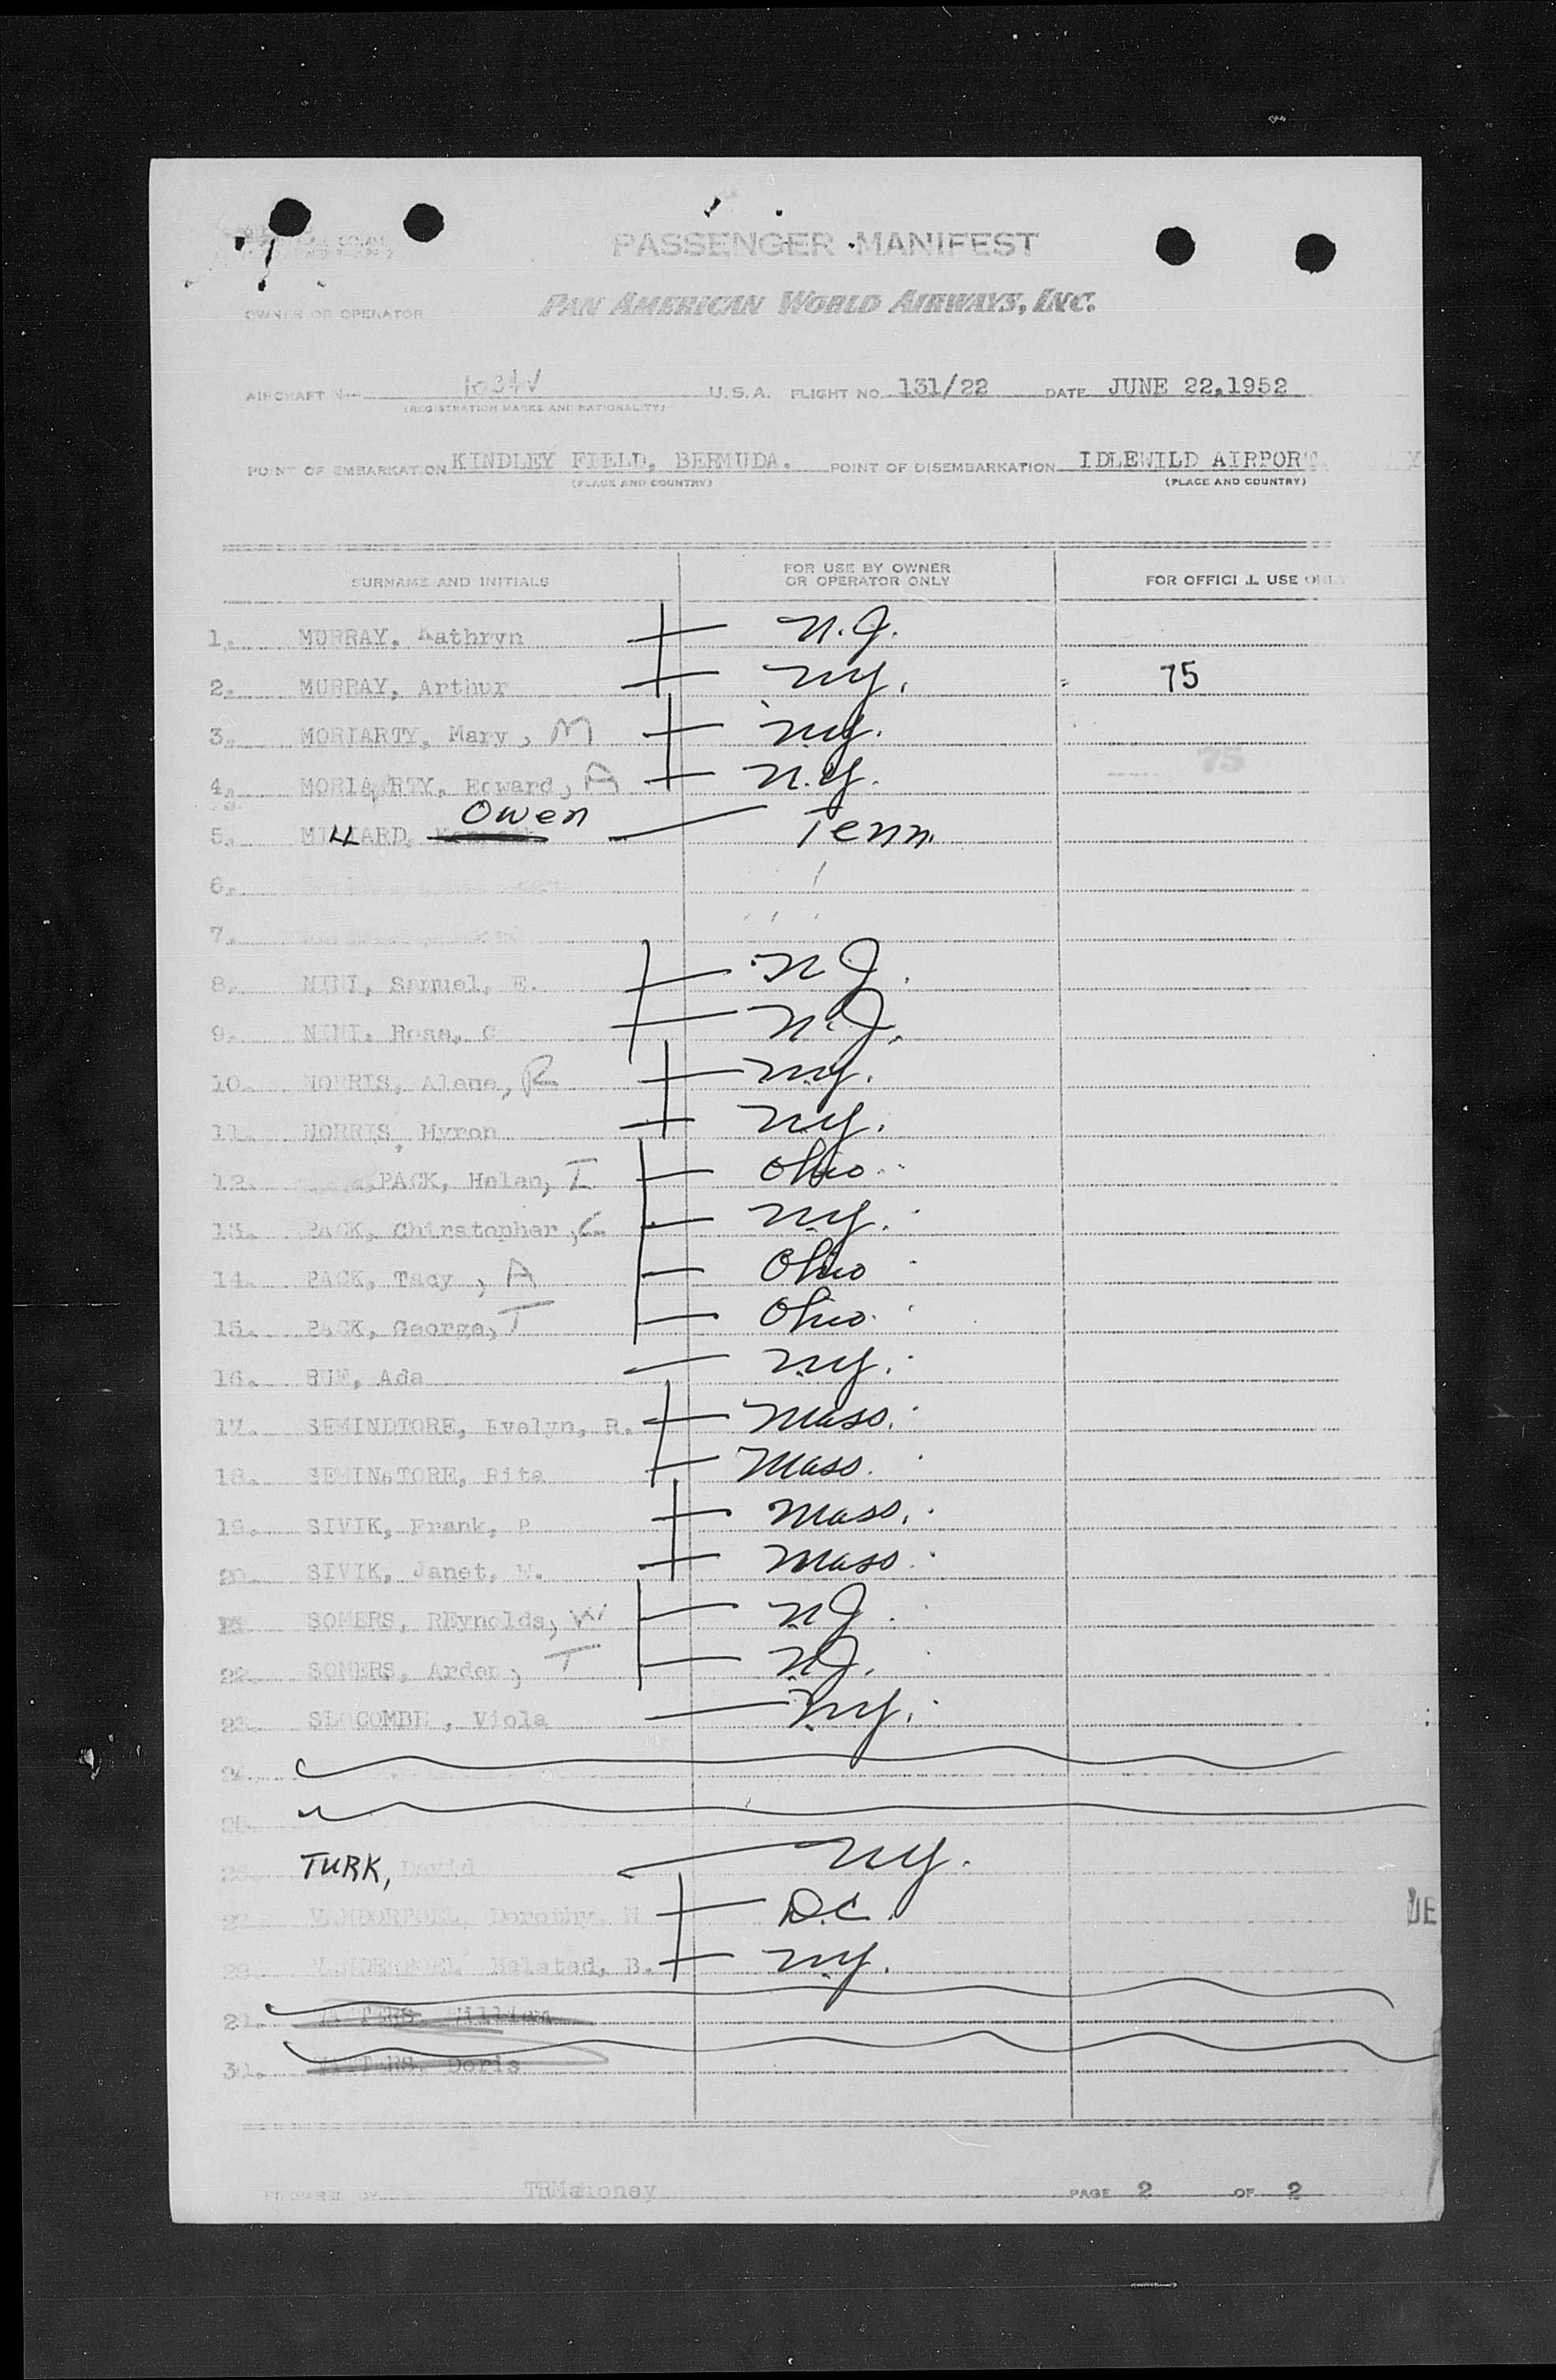 PASSENGER MANIFEST
OWNER OR OPERATOR PAN AMERICAN WORLD AIRWAYS, INC.
AIRCRAFT N 1034V U.S.A. FLIGHT NO. 131/22 DATE JUNE 22,1952
(REGISTRATION MARKS AND NATIONALITY)
POINT OF EMBARKATION KINDLEY FIELD, BERMUDA. POINT OF DISEMBARKATION IDLEWILD AIRPORT
(PLACE AND COUNTRY) (PLACE AND COUNTRY)
SURNAME AND INITIALS FOR USE BY OWNER OR OPERATOR ONLY FOR OFFICIAL USE ONLY
1. MURRAY, Kathryn N.J.
2. MURRAY, Arthur NY. 75
3. MORIARTY, Mary, M NY.
4. MORIARTY, Edward, A N.Y. 75
5. MILLARD, Owen Tenn.
6.
7.
8. NINI, Samuel, E. NJ.
9. NINI, Rose, C N.J.
10. NORRIS, Alane, R NY.
11. NORRIS, Myron NY.
12. PACK, Helen, I Ohio
13. PACK, Chirstopher, C NY.
14. PACK, Tacy, A Ohio
15. PACK, George, T Ohio
16. RUE, Ada NY.
17. SEMINDTORE, Evelyn, R. Mass.
18. SEMINATORE, Rita Mass.
19. SIVIK, Frank, P Mass.
20. SIVIK, Janet, W. Mass.
SOMERS, REynolds, W NJ.
22. SOMERS, Arden, T NJ.
23. SLOCOMBE, Viola NY.
24.
25.
26. TURK, David NY.
27. Dorothy, M D.C.
28. Halsted, B. NY.
29. William
30. Doris
PREPARED BY TRMahoney PAGE 2 OF 2